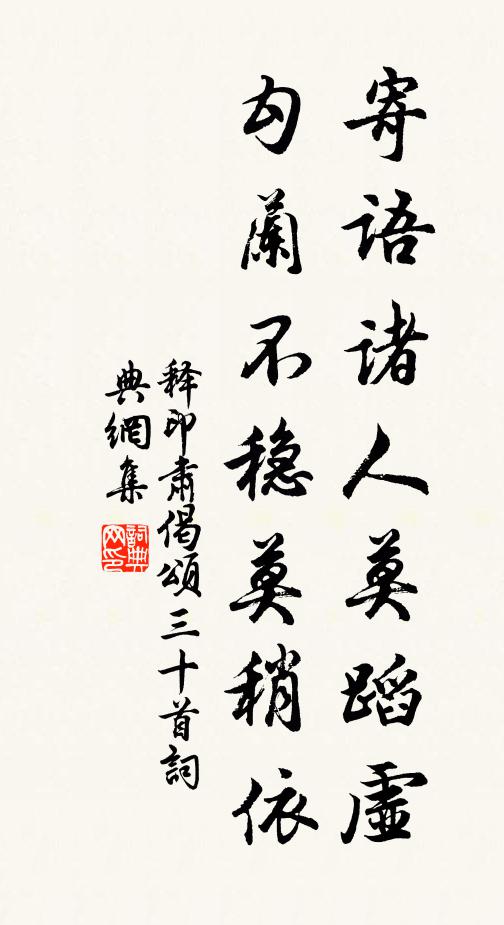 寄语诸人莫蹈虚
勾蘭不稳莫稍依
释印肃偈頌三十首詞
典網集
詞典
网印